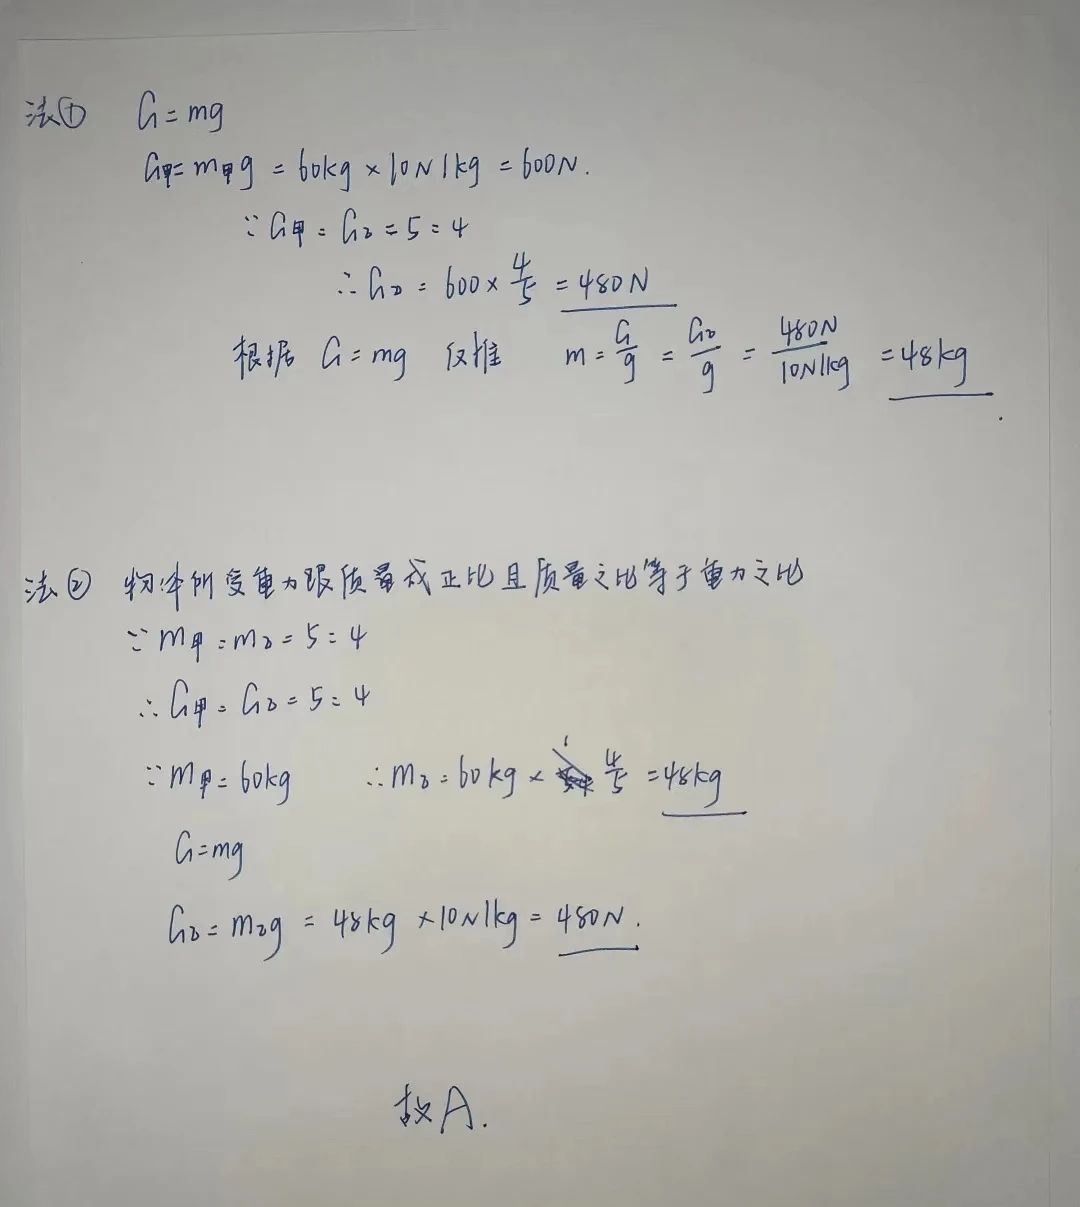 法① G=mg
G甲=m甲g=60kg×10N/kg=600N.
∵G甲:G乙=5:4
∴G乙=600×4/5=480N
根据 G=mg 反推 m=G/g=G乙/g=480N/10N/kg=48kg.
法② 物体所受重力跟质量成正比且质量之比等于重力之比
∵m甲:m乙=5:4
∴G甲:G乙=5:4
∵m甲=60kg ∴m乙=60kg×4/5=48kg
G=mg
G乙=m乙g=48kg×10N/kg=480N.
故A.